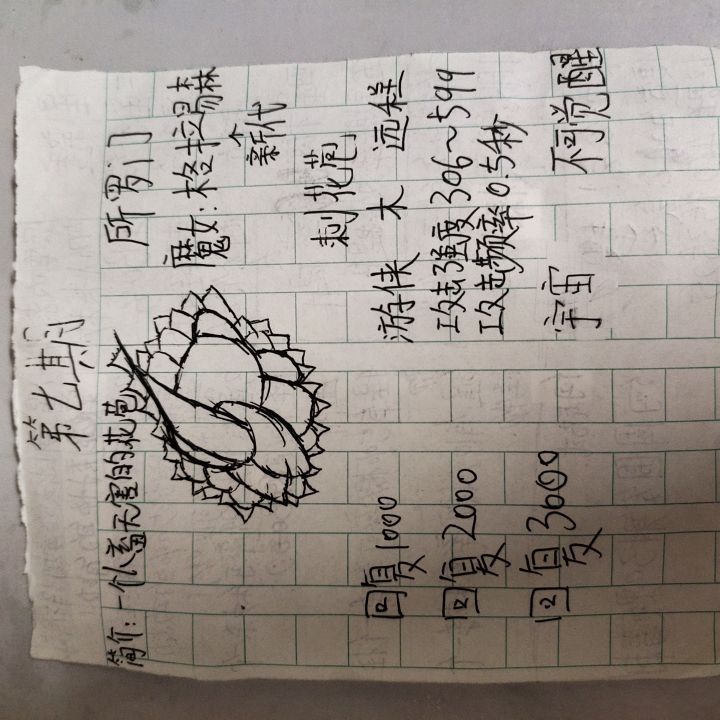 第七期
简介：一个人畜无害的花苞
所罗门
魔女：格拉
新代
刺花苞
游侠 木 远程
回复1000
攻击强度306~599
回复2000
攻击频率0.5秒
宇宙 不可觉醒
回复3000